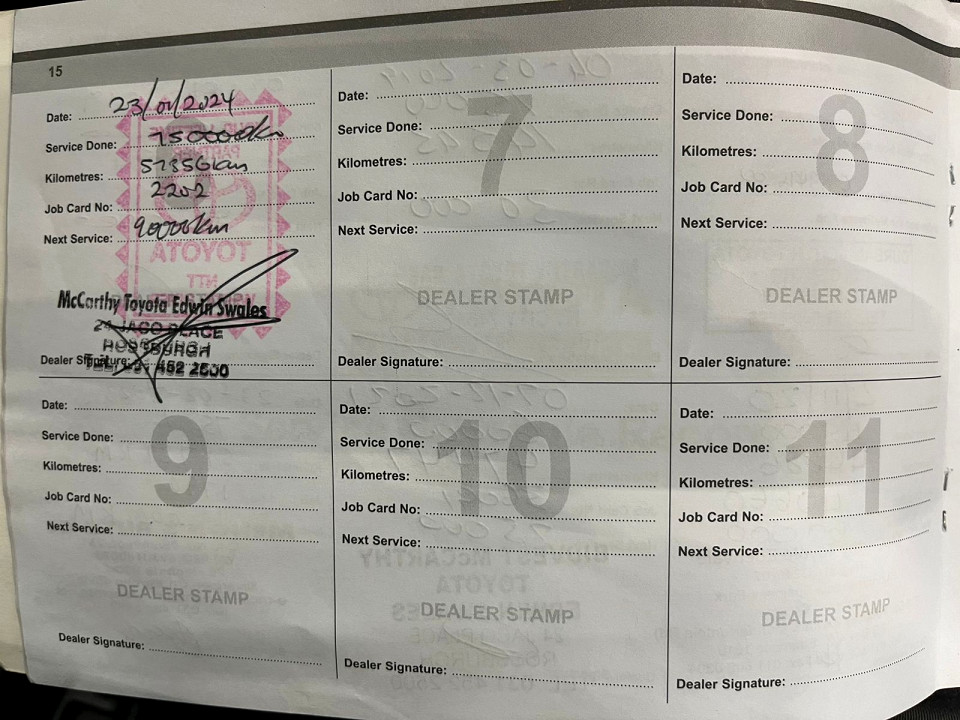 15
Date: 23/01/2024
Service Done: 75000km
Kilometres: 57356km
Job Card No: 2202
Next Service: 90000km
TOYOTA
McCarthy Toyota Edwin Swales
24 JACO PLACE
ROSSBURGH
Dealer Signature:
452 2600
7
Date:
Service Done:
Kilometres:
Job Card No:
Next Service:
DEALER STAMP
Dealer Signature:
8
Date:
Service Done:
Kilometres:
Job Card No:
Next Service:
DEALER STAMP
Dealer Signature:
9
Date:
Service Done:
Kilometres:
Job Card No:
Next Service:
DEALER STAMP
Dealer Signature:
10
Date:
Service Done:
Kilometres:
Job Card No:
Next Service:
DEALER STAMP
Dealer Signature:
11
Date:
Service Done:
Kilometres:
Job Card No:
Next Service:
DEALER STAMP
Dealer Signature: